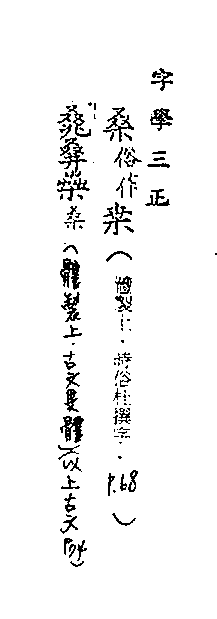 字學三正
桑俗作桒(體製上.時俗杜撰字.P.68)
桑(體製上.古文異體)(以上古文104)